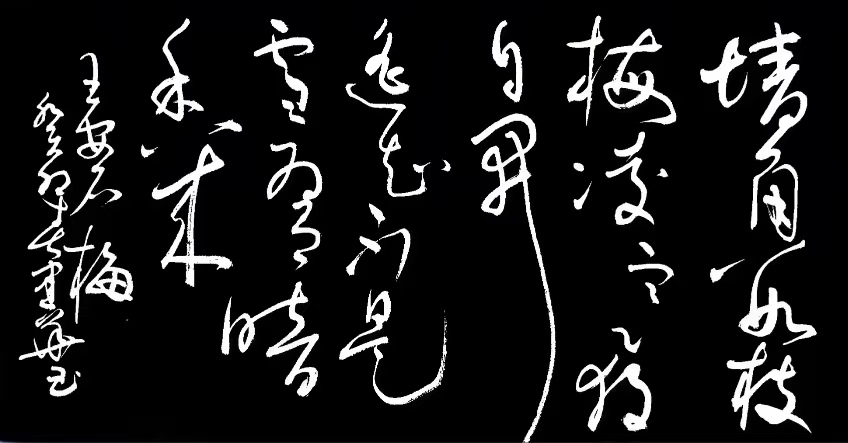 墙角数枝
梅凌寒独
自开
遥知不是
雪为有暗
香来
王安石梅
癸卯